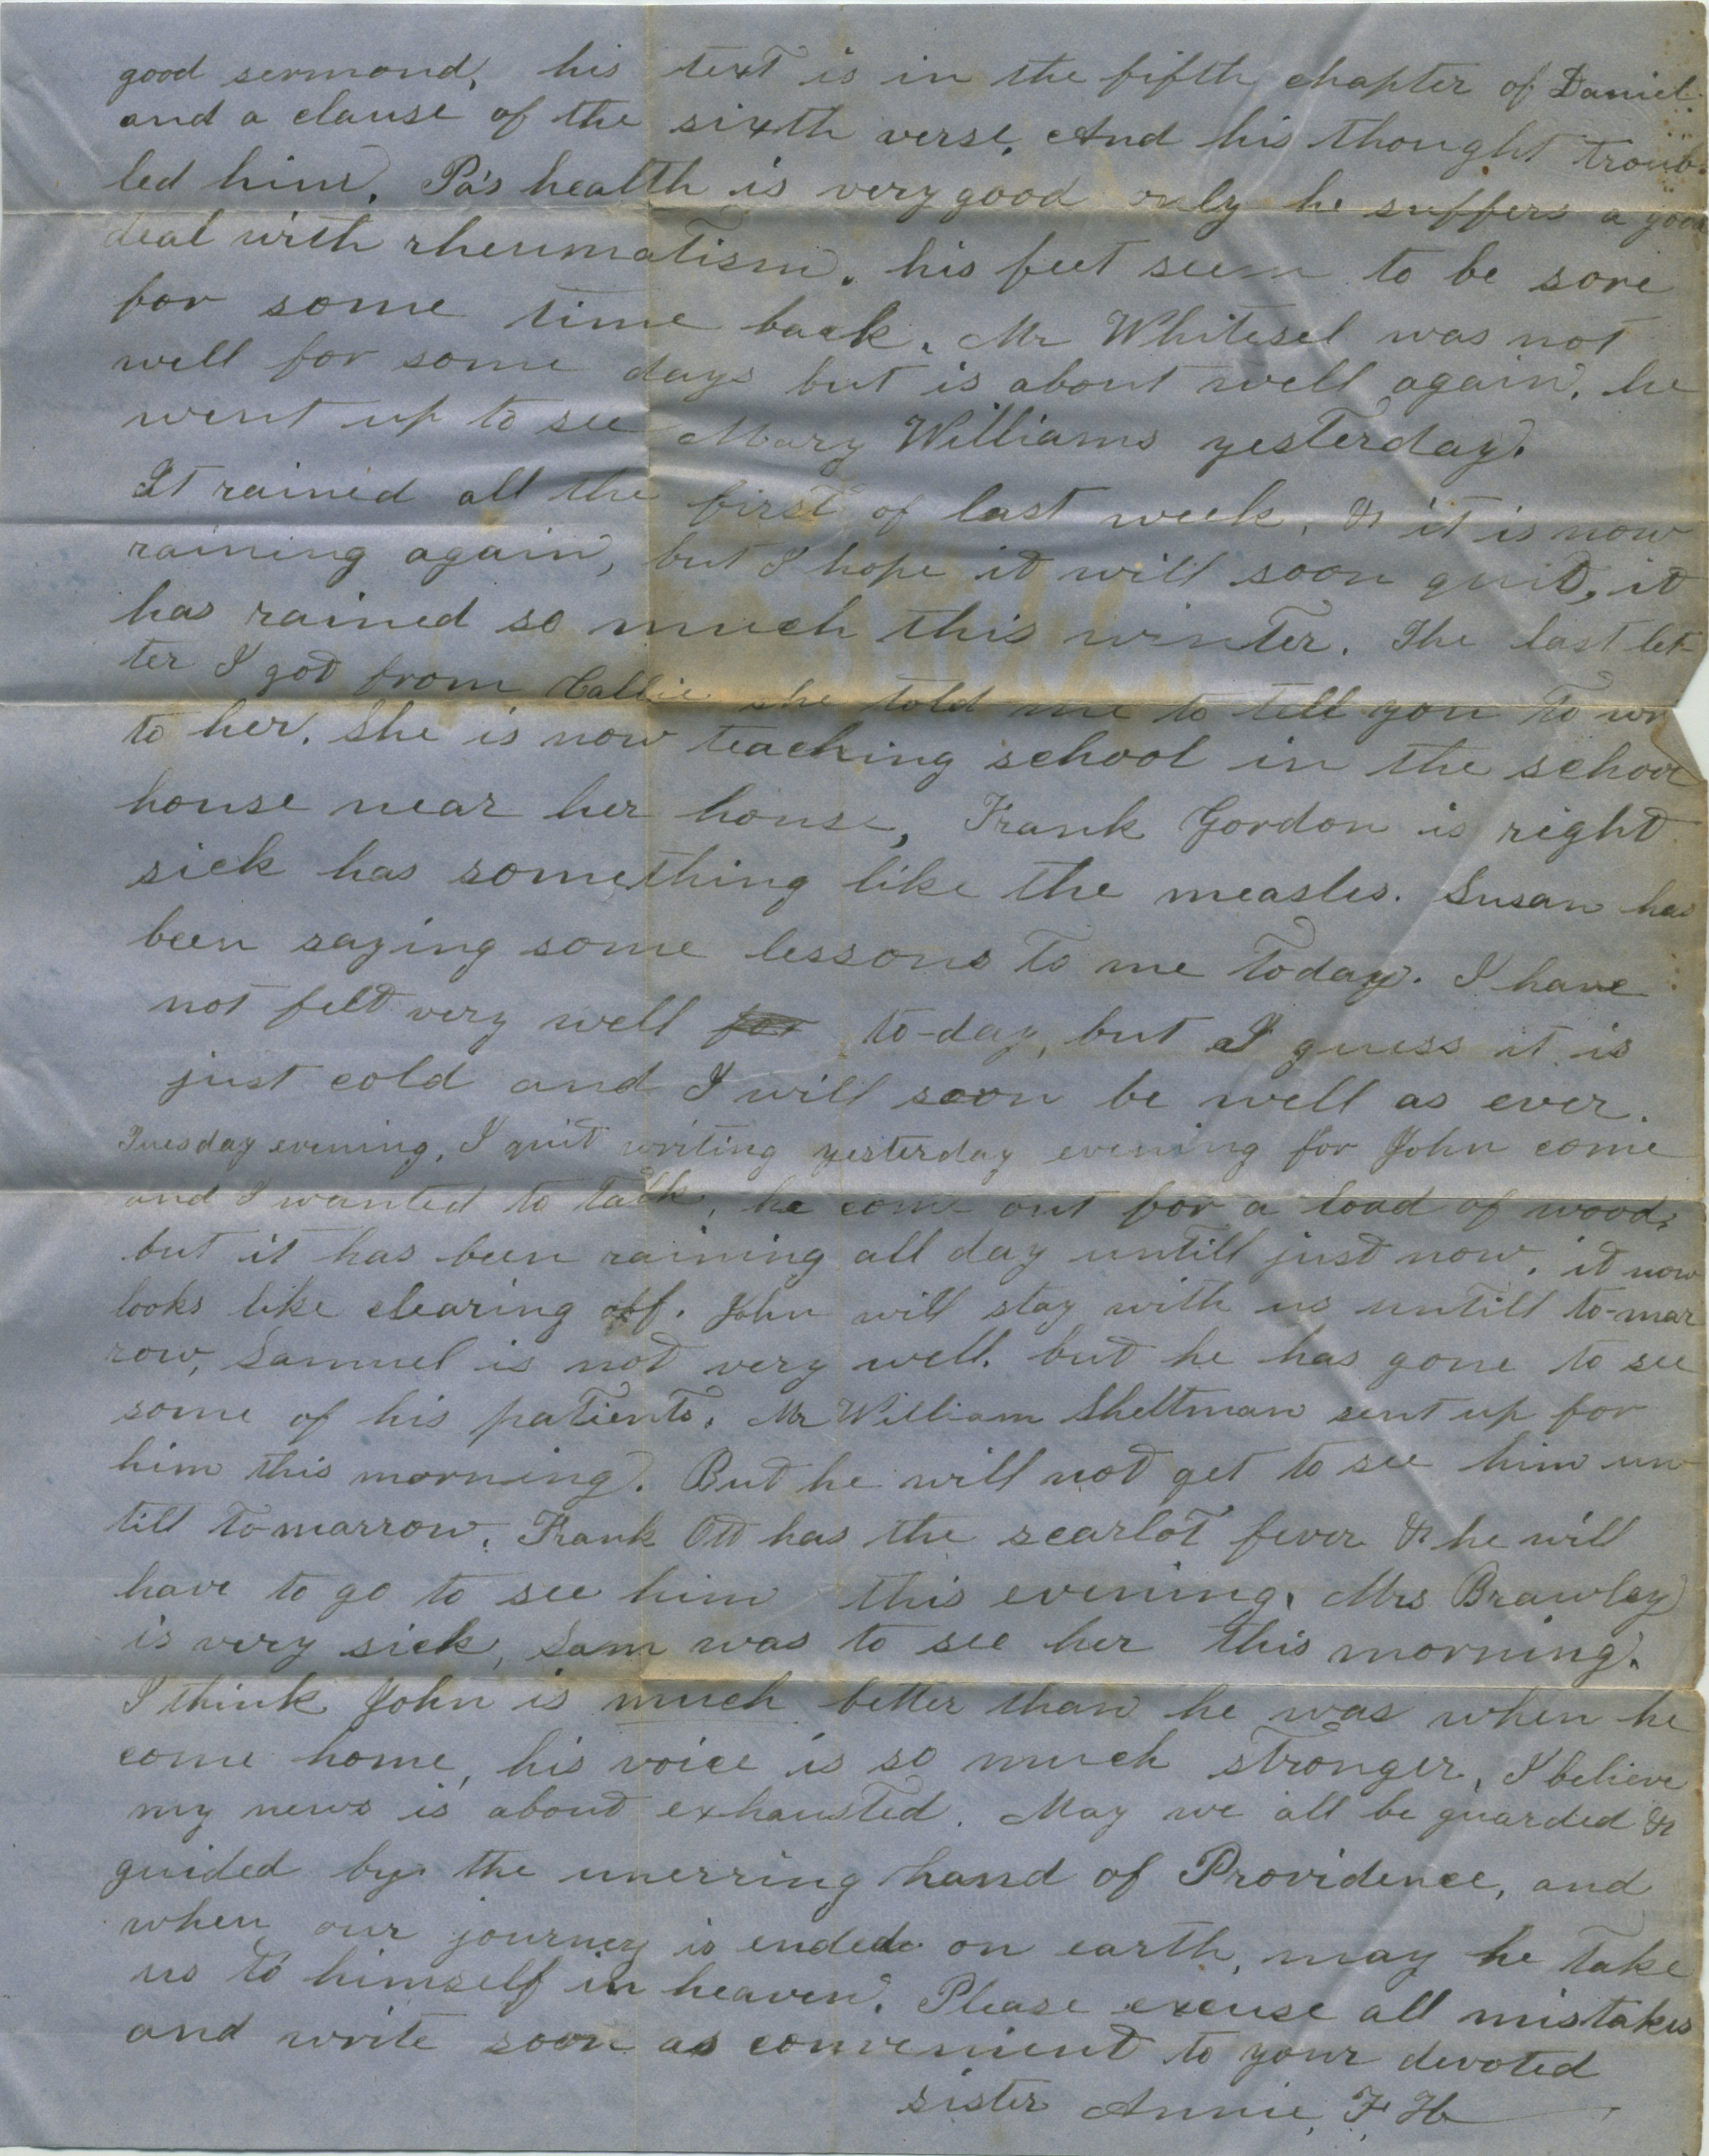 good sermond, his text is in the fifth chapter of Daniel.
and a clause of the sixth verse. And his thought troub-
led him. Pa's health is very good only he suffers a good
deal with rheumatism. his feet seem to be sore
for some time back. Mr Whitesel was not
well for some days but is about well again. he
went up to see Mary Williams yesterday.
It rained all the first of last week, & it is now
raining again, but I hope it will soon quit, it
has rained so much this winter. The last let-
ter I got from Callie she told me to tell you to wr
to her. She is now teaching school in the school
house near her house, Frank Gordon is right
sick has something like the measles. Susan has
been saying some lessons to me today. I have
not felt very well for to-day, but I guess it is
just cold and I will soon be well as ever.
Tuesday evening, I quit writing yesterday evening for John come
and I wanted to talk, he come out for a load of wood,
but it has been raining all day untill just now, it now
looks like clearing off. John will stay with us untill to-mar
row, Samuel is not very well. but he has gone to see
some of his patients. Mr William Sheltman sent up for
him this morning. But he will not get to see him un-
till to-marrow. Frank Ott has the scarlot fever & he will
have to go to see him this evening. Mrs Brawley
is very sick, Sam was to see her this morning.
I think John is much better than he was when he
come home, his voice is so much stronger, I believe
my news is about exhausted. May we all be guarded &
guided by the unerring hand of Providence, and
when our journey is ended on earth, may he take
us to himself in heaven. Please excuse all mistakes
and write soon as convenient to your devoted
sister Annie, F, H